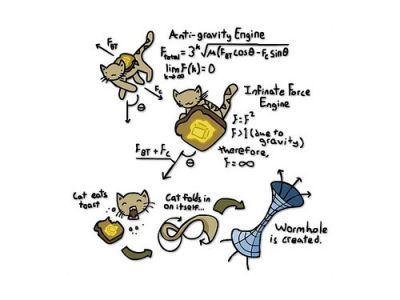 Anti-gravity Engine
F_BT
F_total = 3^k √μ(F_BT cosθ - F_c sinθ
lim k→∞ F(k) = 0
F_c
θ
Infinate Force
Engine
F = F²
F > 1 (due to
gravity)
therefore,
F = ∞
F_BT + F_c
θ
Cat eats
toast
Cat folds in
on itself...
Wormhole
is created.